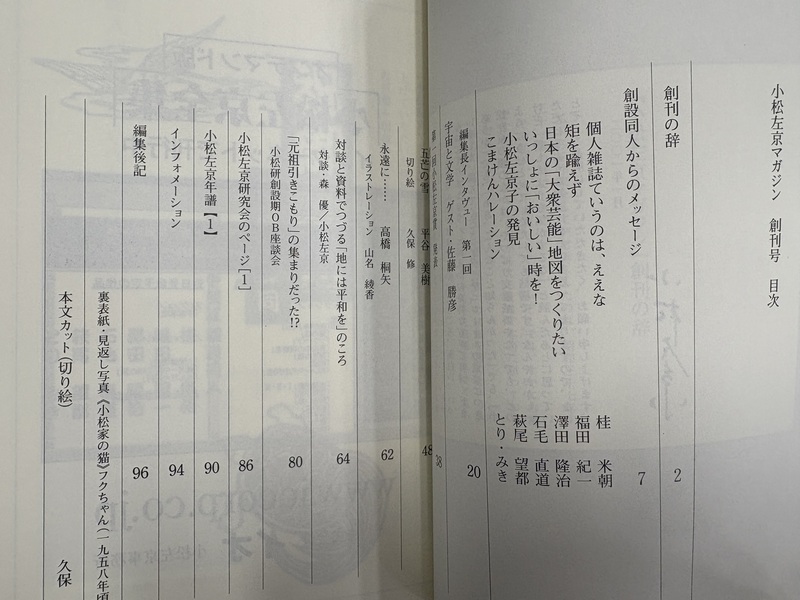 小松左京マガジン 創刊号 目次
創刊の辞 2
創設同人からのメッセージ 7
個人雑誌ていうのは、ええな 桂 米朝
矩を踰えず 福田 紀一
日本の「大衆芸能」地図をつくりたい 澤田 隆治
いっしょに「おいしい」時を! 石毛 直道
小松左京子の発見 萩尾 望都
こまけんハレーション とり・みき
編集長インタヴュー 第一回 20
宇宙と文学 ゲスト・佐藤 勝彦
第一回小松左京賞 発表 38
五芒の雪 平谷 美樹 48
切り絵 久保 修
永遠に…… 高橋 桐矢 62
イラストレーション 山名 綾香
対談と資料でつづる「地には平和を」のころ 64
対談・森 優/小松左京
「元祖引きこもり」の集まりだった!? 80
小松研創設期OB座談会
小松左京研究会のページ[1] 86
小松左京年譜【1】 90
インフォメーション 94
編集後記 96
裏表紙・見返し写真《小松家の猫》フクちゃん(一九五八年頃
本文カット(切り絵) 久保